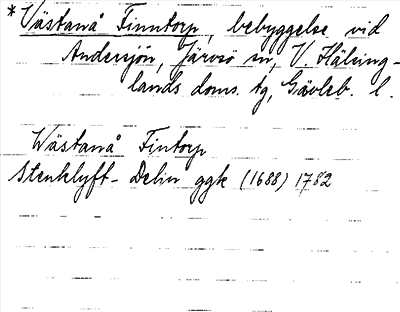 * Västanå Finntorp, bebyggelse vid
Andersjön, Järvsö sn, V. Hälsing-
lands doms. tg, Gävleb. l.
Wästanå Fintorp
Stenklyft-Delin ggk (1688) 1782